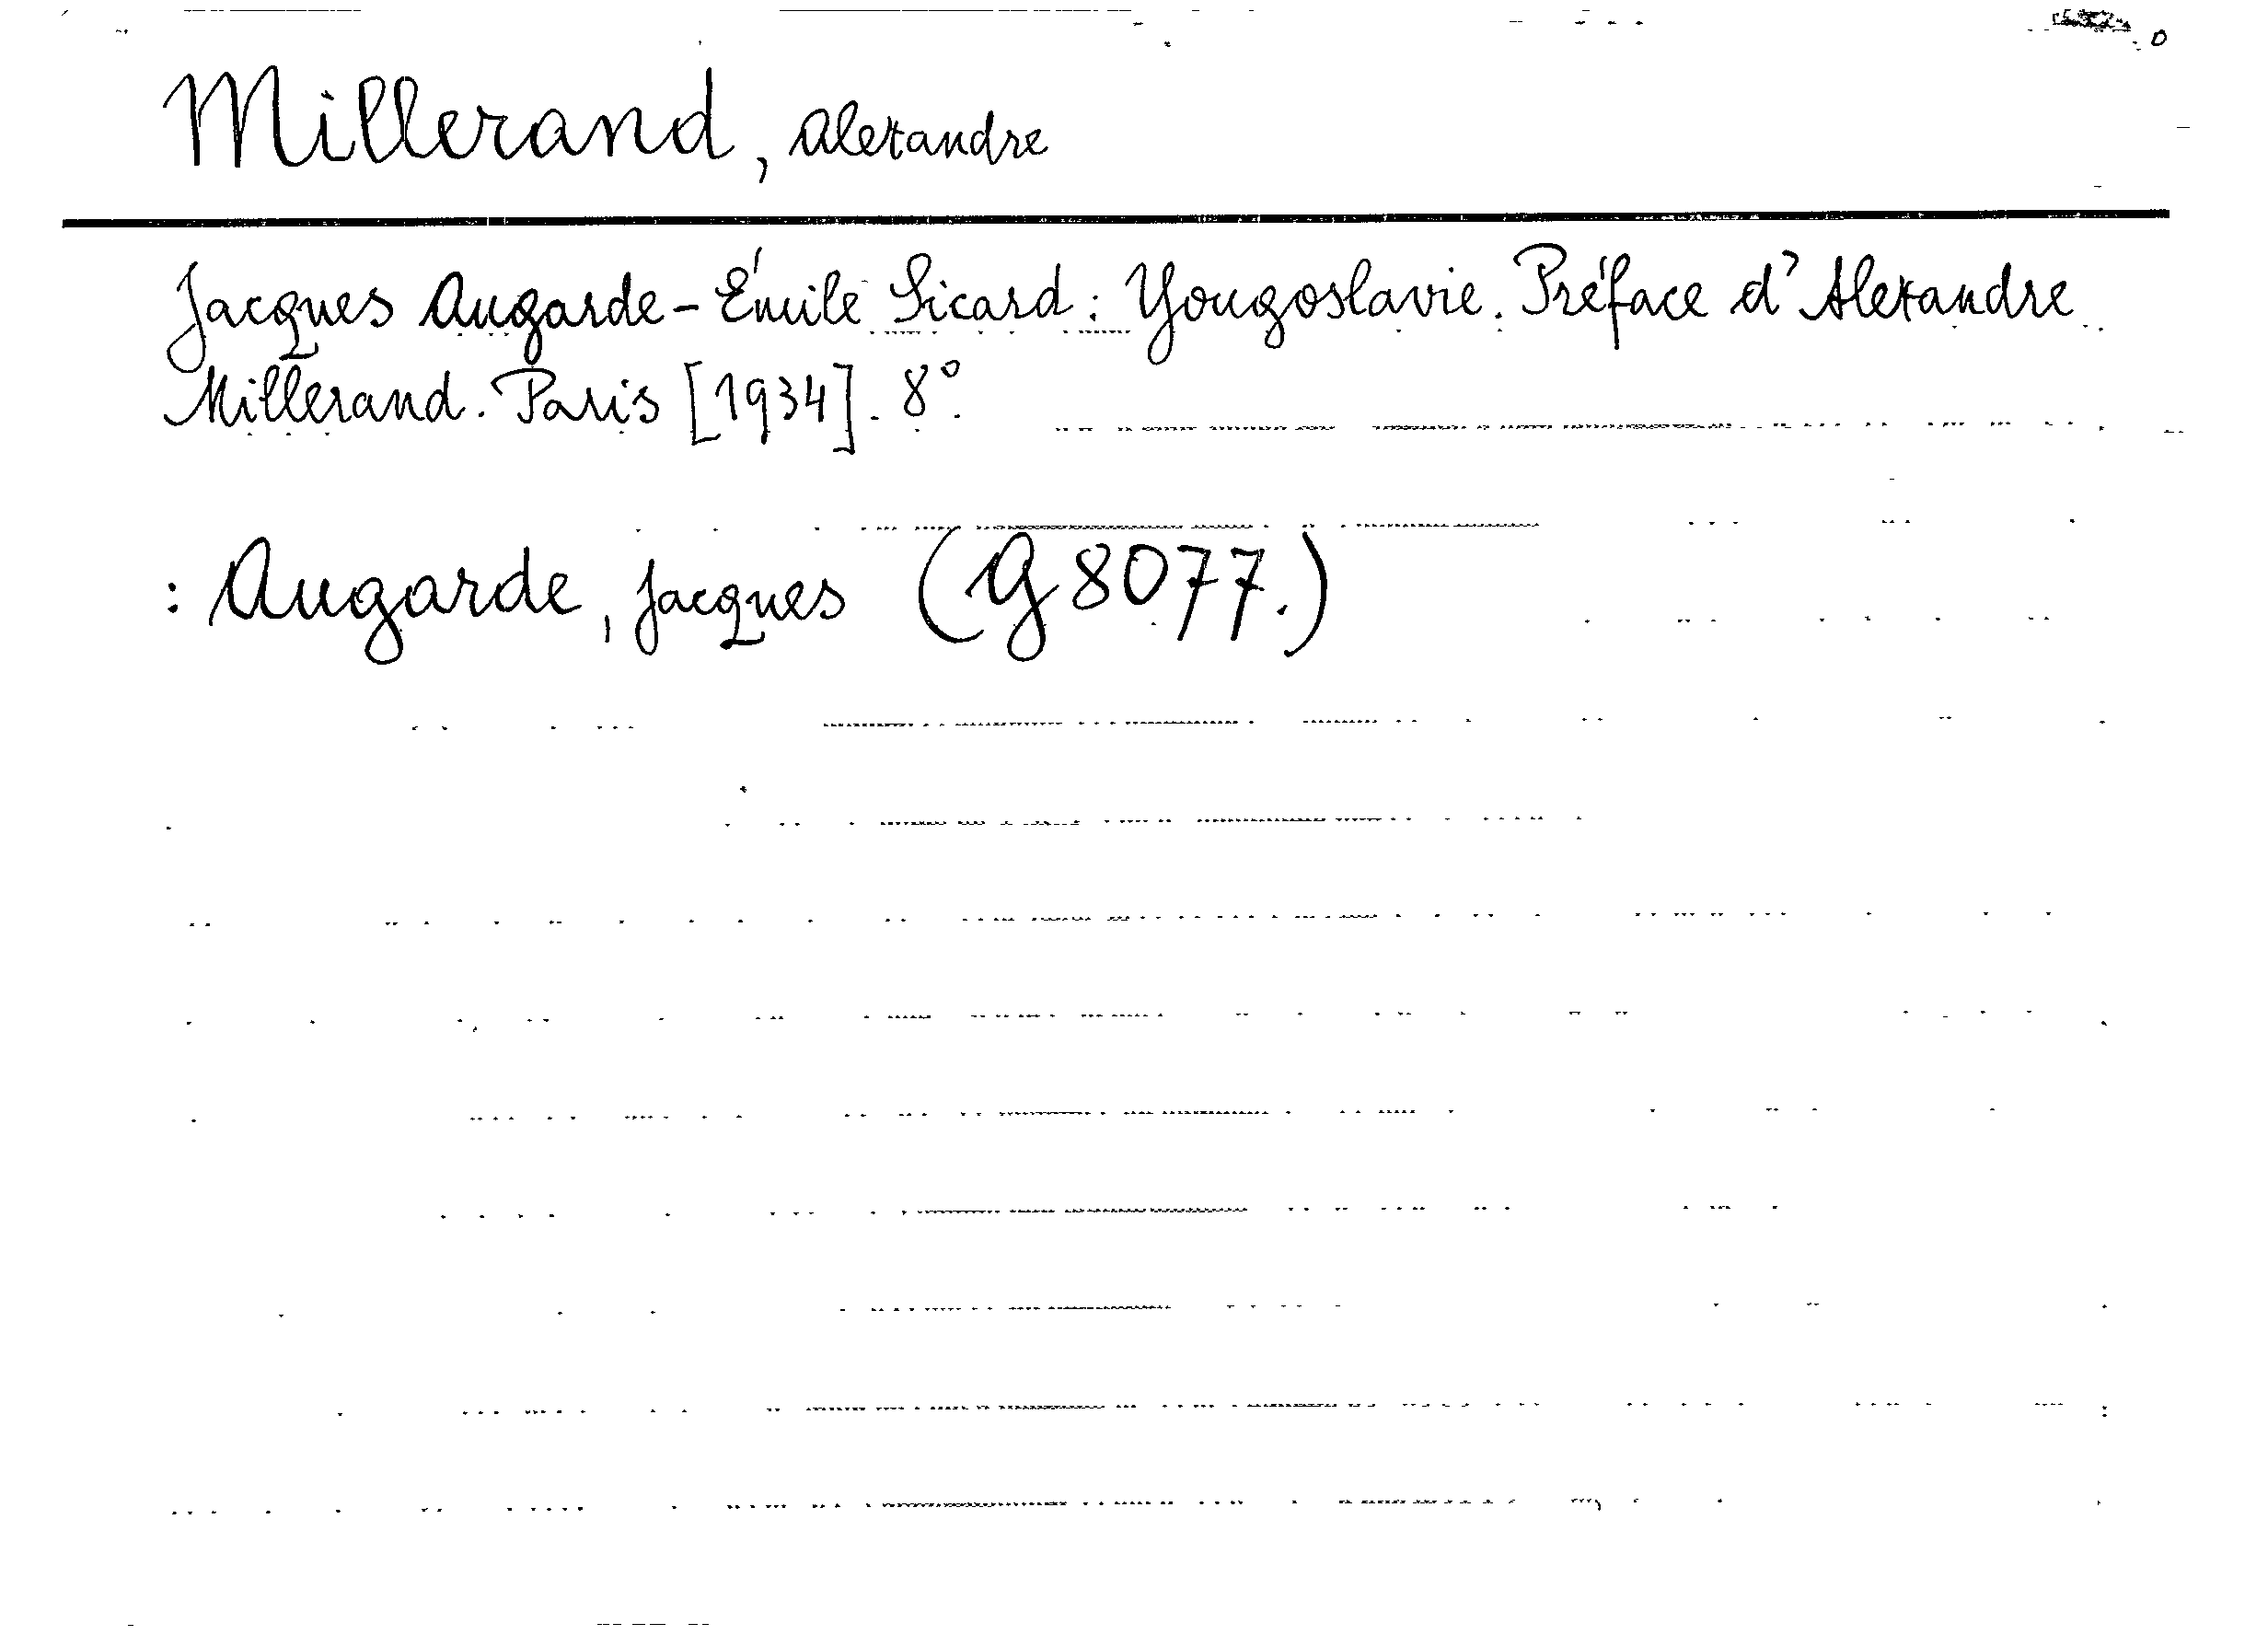 Millerand, Alexandre
Jacques Augarde - Émile Sicard: Yougoslavie. Préface d'Alexandre
Millerand. Paris [1934]. 8°.
: Augarde, Jacques (G 8077.)